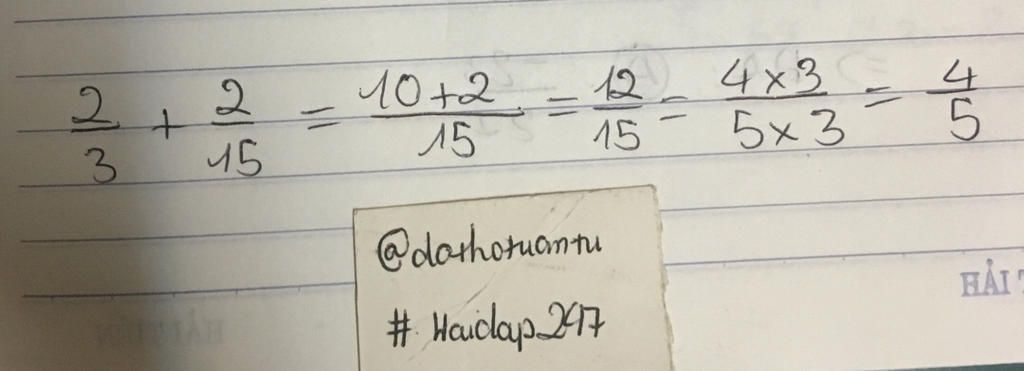 2/3 + 2/15 = 10+2/15 = 12/15 = 4×3/5×3 = 4/5
@dothotuantu
# Hoidap247
HẢI